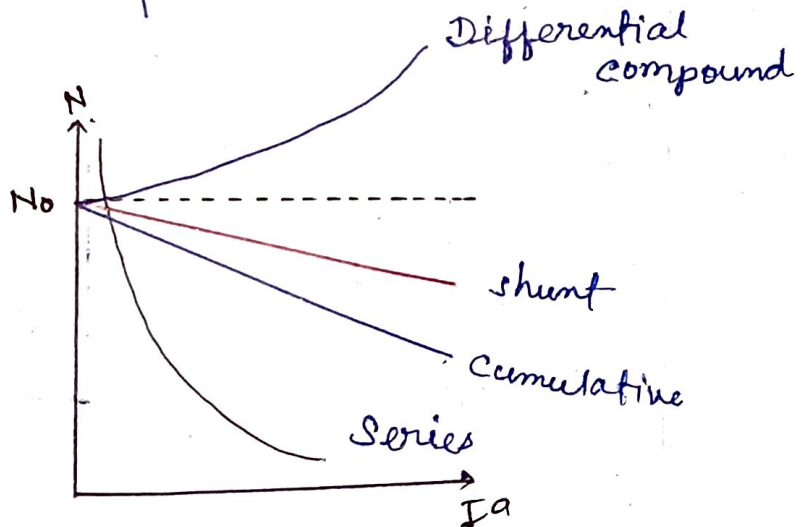 Differential
compound
N
No
shunt
Cumulative
Series
Ia